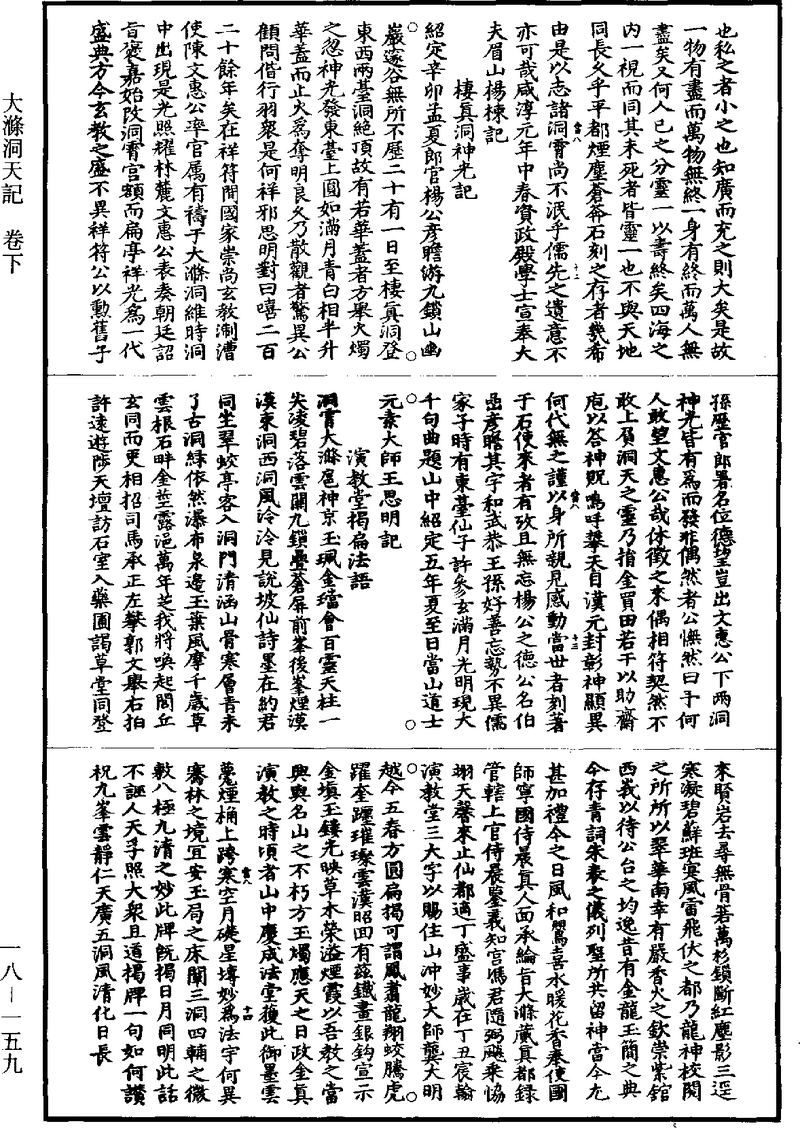 大滌洞天記　卷下
一八—一五九
也私之者小之也知廣而充之則大矣是故
一物有盡而萬物無終一身有終而萬人無
盡矣又何人己之分靈一以壽終矣四海之
内一視而同其未死者皆靈一也不與天地
同長久乎平都煙塵蒼莽石刻之存者幾希
由是以志諸洞霄尚不泯乎儒先之遺意不
亦可哉咸淳元年中春資政殿學士宣奉大
夫眉山楊棟記
棲真洞神光記
紹定辛卯孟夏郎官楊公彥瞻游九鎖山幽
巖邃谷無所不歷二十有一日至棲真洞登
東西兩臺洞絕頂故有若華蓋者方舉火燭
之忽神光發東臺上圓如滿月青白相半升
華蓋而止火為奪明良久乃散觀者驚異公
顧問偕行羽衆是何祥邪思明對曰嘻二百
二十餘年矣在祥符間國家崇尚玄教淛漕
使陳文惠公率官屬有禱于大滌洞維時洞
中出現是光照耀林麓文惠公表奏朝廷詔
旨褒嘉始改洞霄宫額而扁亭祥光為一代
盛典方今玄教之盛不異祥符公以勳舊子
孫歷官郎署名位德望豈出文惠公下兩洞
神光皆有為而發非偶然者公憮然曰予何
人敢望文惠公哉休徵之來偶相符契然不
敢上負洞天之靈乃捐金買田若干以助齋
庖以答神貺嗚呼擘天自漢元封彰神顯異
何代無之謹以身所親見感動當世者刻著
于石使來者有攷且無忘楊公之德公名伯
嵒彥瞻其字和武恭王孫好善忘勢不異儒
家子時有東臺仙子許參玄滿月光明現大
千句曲題山中紹定五年夏至日當山道士
元素大師王思明記
演教堂揭扁法語
洞霄大滌扈神京玉珮金璫會百靈天柱一
尖凌碧落雲關九鎖疊蒼屏前峯後峯煙漠
漠東洞西洞風泠泠見說坡仙詩墨在約君
同坐翠蛟亭客入洞門清涵山骨寒層青未
了古洞緑依然瀑布泉邊玉葉風摩千歲草
雲根石畔金莖露浥萬年芝我將喚起閭丘
玄同而更相招司馬承正左攀郭文舉右拍
許遠遊陟天壇訪石室入藥圃謁草堂同登
來賢岩去尋無骨箬萬杉鎖斷紅塵影三逕
寒凝碧蘚斑寒風雷飛伏之都乃龍神校閱
之所所以翠華南幸有嚴香火之欽崇紫館
西義以待公台之均逸昔有金龍玉簡之典
今存青詞朱表之儀列聖所共留神當今尤
甚加禮今之日風和鶯喜水暖花香奉使國
師寧國侍晨真人面承綸旨大滌藏真都録
管轄上官侍晨鑒義知宫馮君隨弼颷乘恊
翊天馨來止仙都適丁盛事歲在丁丑宸翰
演教堂三大字以賜住山沖妙大師龔大明
越今五春方圓扁揭可謂鳳翥龍翔蛟騰虎
躍奎躔璀璨雲漢昭回有茲鐵畫銀鈎宣示
金填玉鏤光映草木榮溢煙霞以吾教之當
興與名山之不朽方玉燭應天之日政金真
演教之時頃者山中慶成法堂獲此御墨雲
甍煙桷上跨寒空月礎星塼妙為法宇何異
騫林之境宜安玉局之床闡三洞四輔之微
敷八極九清之妙此牌旣揭日月同明此話
不誣人天孚照大衆且道揭牌一句如何讃
祝九峯雲靜仁天廣五洞風清化日長